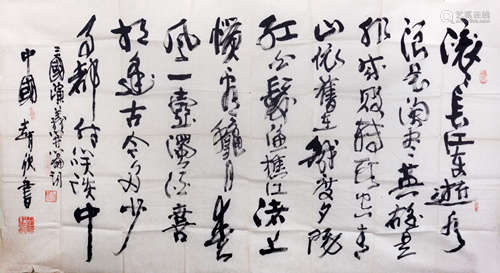 滚滚长江东逝水
浪花淘尽英雄是
非成败转头空青
山依旧在幾度夕陽
红白髮渔樵江渚上
惯看秋月春
风一壶濁酒喜
相逢古今多少
事都付笑谈中
三國演義开篇詞
中國 書